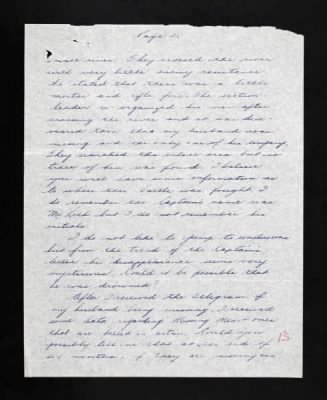 Page 2.
small river. They crossed the river
with very little enemy resistance
he stated that there was a little
mortar and rifle fire. The section
leader re organized his men after
crossing the river and it was dis-
covered then that my husband was
missing and the only one of his company.
They searched the whole area but no
trace of him was found. I believe
you will have more information as
to where this battle was fought. I
do remember the Captain's name was
but I do not remember his
initials.
I do not like to jump to conclusions
but from the trend of the Captain's
letter his disappearance seems very
mysterious. Could it be possible that
he was drowned?
After I received the telegram of
my husband being missing, I received
some data regarding Missing Men &
that are killed in action. Could you
possibly tell me that at the end of
six months, if they are
13